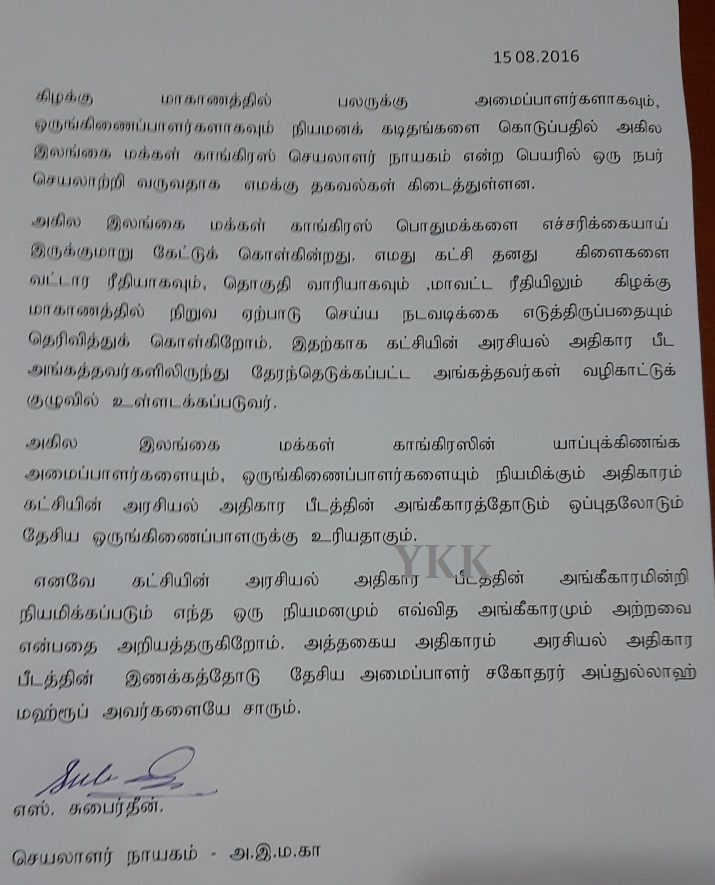 15 08.2016
கிழக்கு மாகாணத்தில் பலருக்கு அமைப்பாளர்களாகவும்,
ஒருங்கிணைப்பாளர்களாகவும் நியமனக் கடிதங்களை கொடுப்பதில் அகில
இலங்கை மக்கள் காங்கிரஸ் செயலாளர் நாயகம் என்ற பெயரில் ஒரு நபர்
செயலாற்றி வருவதாக எமக்கு தகவல்கள் கிடைத்துள்ளன.
அகில இலங்கை மக்கள் காங்கிரஸ் பொதுமக்களை எச்சரிக்கையாய்
இருக்குமாறு கேட்டுக் கொள்கின்றது. எமது கட்சி தனது கிளைகளை
வட்டார ரீதியாகவும், தொகுதி வாரியாகவும் ,மாவட்ட ரீதியிலும் கிழக்கு
மாகாணத்தில் நிறுவ ஏற்பாடு செய்ய நடவடிக்கை எடுத்திருப்பதையும்
தெரிவித்துக் கொள்கிறோம். இதற்காக கட்சியின் அரசியல் அதிகார பீட
அங்கத்தவர்களிலிருந்து தேரந்தெடுக்கப்பட்ட அங்கத்தவர்கள் வழிகாட்டுக்
குழுவில் உள்ளடக்கப்படுவர்.
அகில இலங்கை மக்கள் காங்கிரஸின் யாப்புக்கிணங்க
அமைப்பாளர்களையும், ஒருங்கிணைப்பாளர்களையும் நியமிக்கும் அதிகாரம்
கட்சியின் அரசியல் அதிகார பீடத்தின் அங்கீகாரத்தோடும் ஒப்புதலோடும்
தேசிய ஒருங்கிணைப்பாளருக்கு உரியதாகும்.
YKK
எனவே கட்சியின் அரசியல் அதிகார பீடத்தின் அங்கீகாரமின்றி
நியமிக்கப்படும் எந்த ஒரு நியமனமும் எவ்வித அங்கீகாரமும் அற்றவை
என்பதை அறியத்தருகிறோம். அத்தகைய அதிகாரம் அரசியல் அதிகார
பீடத்தின் இணக்கத்தோடு தேசிய அமைப்பாளர் சகோதரர் அப்துல்லாஹ்
மஹ்ரூப் அவர்களையே சாரும்.
எஸ். சுபைர்தீன்.
செயலாளர் நாயகம் - அ.இ.ம.கா